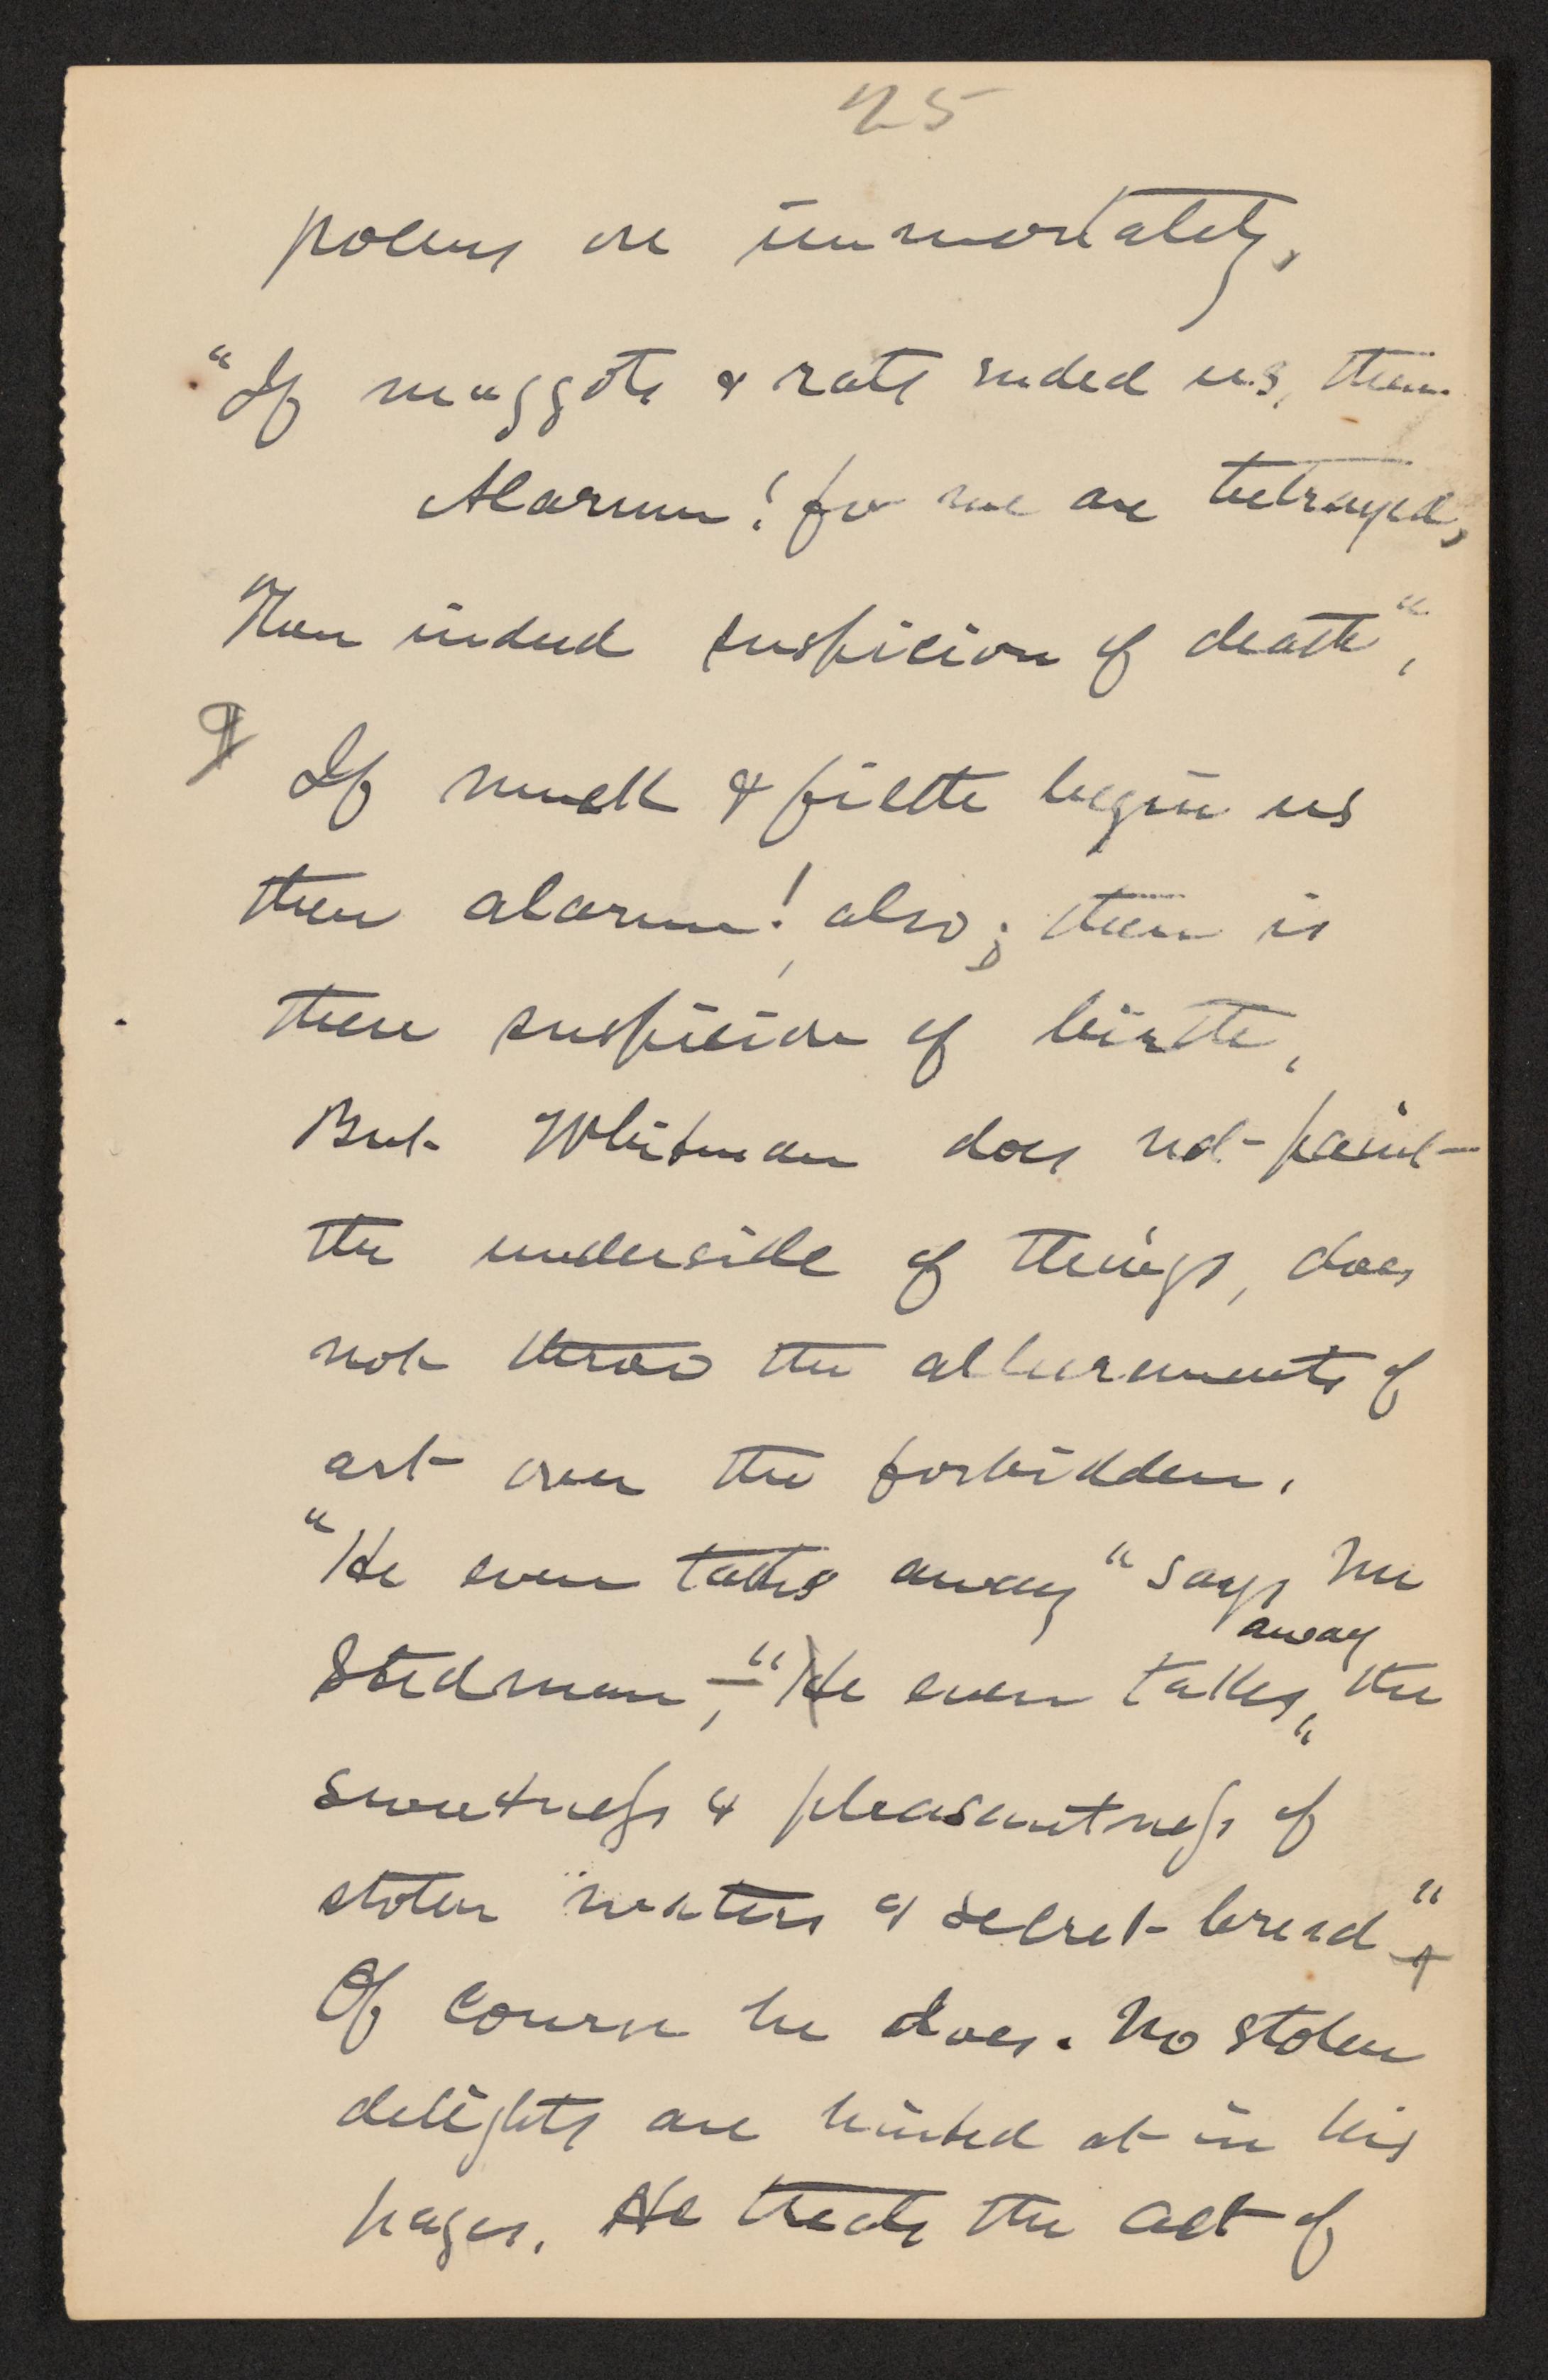 25
poems on immortality,
"If maggots & rats ended us, then
Alarum! for we are betrayed,
Then indeed suspicion of death",
¶ If muck & filth begin us
then alarum! also; then is
there suspicion of birth,
But Whitman does not paint
the underside of things, does
not throw the allurements of
art over the forbidden.
"He even takes away" says Mr
away
Stedman, — "He even takes, the
sweetness & pleasantness of
stolen waters & secret bread"
Of course he does. No stolen
delights are hinted at in his
pages. He treats the act of